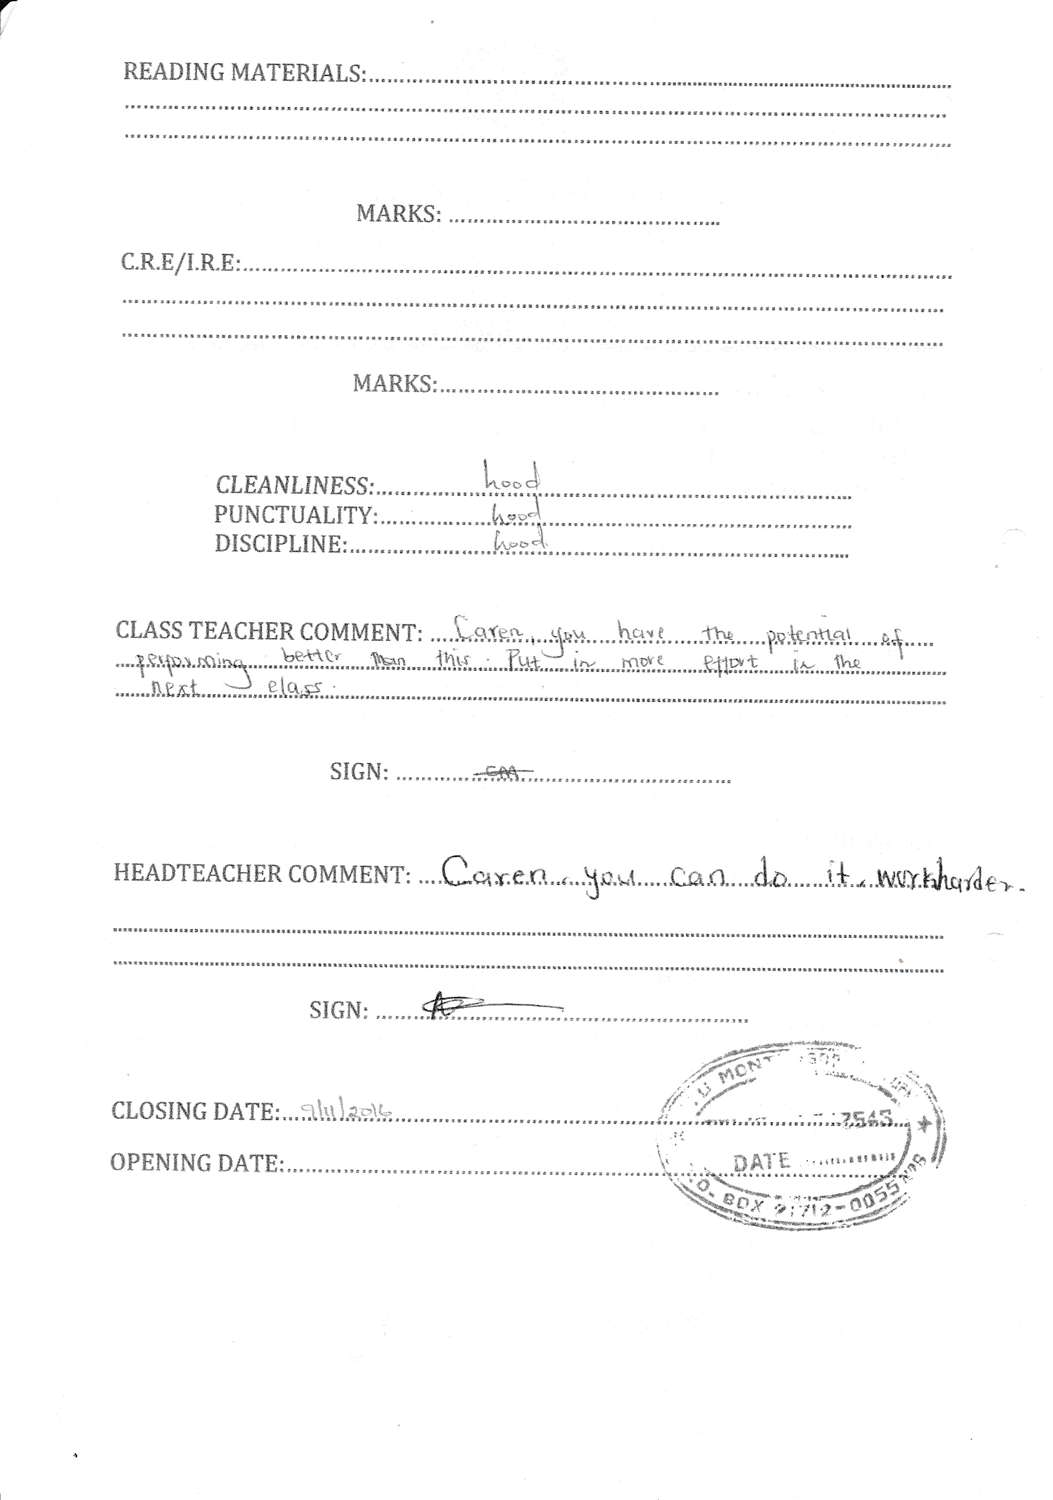 READING MATERIALS:
MARKS:
C.R.E/I.R.E:
MARKS:
CLEANLINESS: Good
PUNCTUALITY: Good
DISCIPLINE: Good
CLASS TEACHER COMMENT: Caren, you have the potential of
performing better than this. Put in more effort in the
next class.
SIGN:
HEADTEACHER COMMENT: Caren, you can do it, workharder.
SIGN:
CLOSING DATE: 9/11/2016
OPENING DATE:
MONT
DATE
BOX